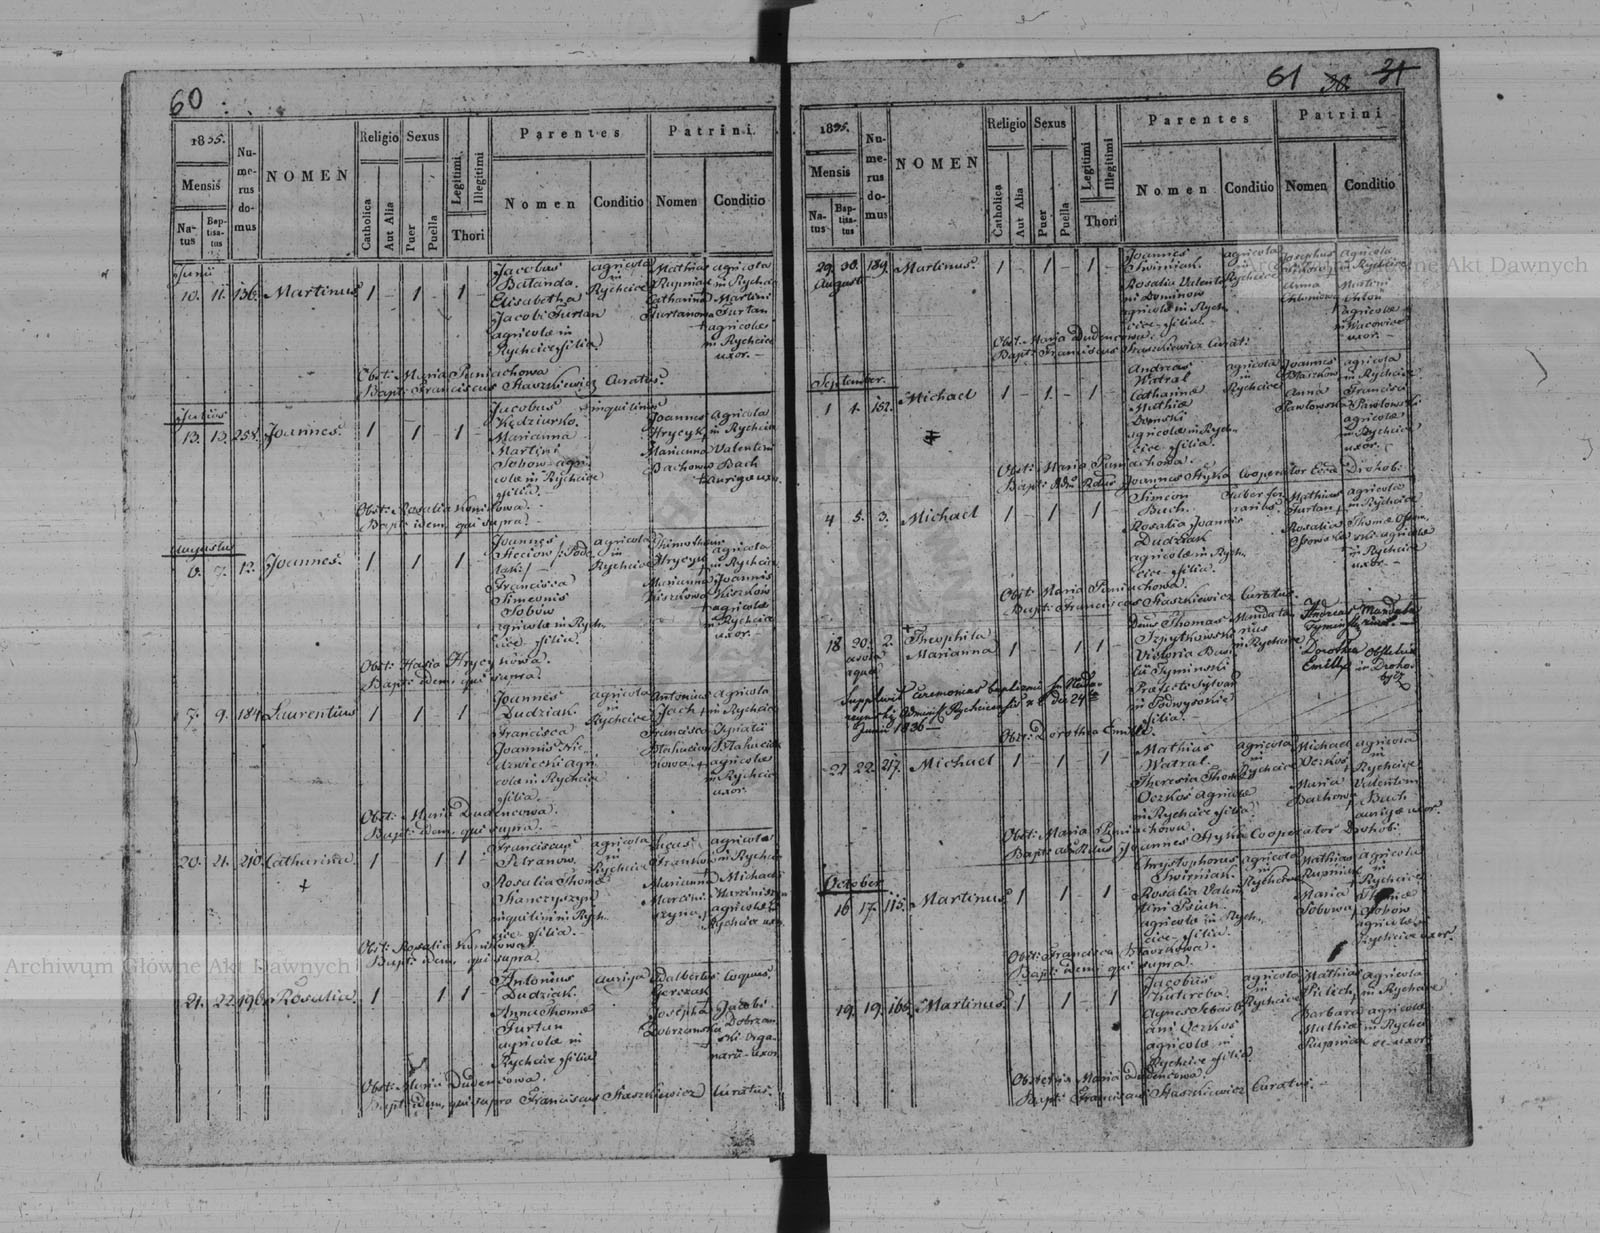 60
1835.
Mensis
Na-
tus
Bap-
tisa-
tus
Nu-
me-
rus
do-
mus
NOMEN
Religio
Catholica
Aut Alia
Sexus
Puer
Puella
Legitimi
Illegitimi
Thori
Parentes
Nomen
Conditio
Patrini.
Nomen
Conditio
Junii
10. 11. 136. Martinus 1 - 1 - 1 -
Jacobus
Batanda.
Elisabetha
Jacobi Turtan
agricolae in
Rychcice filia.
agricola
in
Rychcice
Mathias
Rupniak
Catharina
Turtanowa
agricola
in Rychcice
Martini
Turtan
agricolae
in Rychcice
uxor. -
Obst: Maria Puniachowa
Bapt: Franciscus Staszkiewicz Curatus.
Julius
13. 13. 258. Joannes. 1 - 1 - 1 -
Jacobus
Kędziurko.
Marianna
Martini
Sobow agri-
colae in Rychcice
filia.
inquilinus
Joannes
Hrycyk
Marianna
Bachowa
agricola
in Rychcice
Valentini
Bach
aurigae uxor.
Obst: Rosalia Konikowa.
Bapt: idem, qui supra.
Augustus
6. 7. 12. Joannes. 1 1 1
Joannes
Steciow
Francisca
Simeonis
Sobów
agricolae in Rych-
cice filia.
agricola
in
Rychcice
Thimotheus
Hrycyk
Marianna
Kiszkowa
agricola
in Rychcice
Joannis
Kiszkow
agricolae
in Rychcice
uxor.
Obst: Hasia Hrycykowa.
Bapt: idem, qui supra.
7. 9. 184. Laurentius 1 1 1
Joannes
Dudziak.
Francisca
Joannis Nie-
dzwiecki agri-
colae in Rychcice
filia.
agricola
in
Rychcice
Antonius
Jach
Francisca
agricola
in Rychcice
Ignatii
agricolae
in Rychcice
uxor.
Obst: Maria Dudencowa.
Bapt: idem, qui supra.
20. 21. 210. Catharina 1 1 1
Franciscus
Petranow.
Rosalia Thomae
Stanczyszyn
inquilini in Rych-
cice filia.
agricola
in
Rychcice
Lucas
Franków
Marianna
Marcini-
szyna
agricola
in Rychcice
Michaeli
Marciniszyn
agricolae in
Rychcice uxor.
Obst: Rosalia Konikowa.
Bapt: idem, qui supra.
21. 22. 196. Rosalia. 1 1 1
Antonius
Dudziak.
Anna Thomae
Turtan
agricolae in
Rychcice filia
auriga
Adalbertus
Gerczak
Josepha
Dobrzanska
coquus
Jacobi
Dobrzan-
ski orga-
narii uxor
Obst: Maria Dudencowa.
Bapt: idem, qui supra Franciscus Staszkiewicz Curatus.
61 30 31
1835.
Mensis
Na-
tus
Bap-
tisa-
tus
Nu-
me-
rus
do-
mus
NOMEN
Religio
Catholica
Aut Alia
Sexus
Puer
Puella
Legitimi
Illegitimi
Thori
Parentes
Nomen
Conditio
Patrini
Nomen
Conditio
29. 30. 189. Martinus. 1 - 1 - 1 -
Augusti
Joannes
Swirniak.
Rosalia Valenti-
ni Dominow
agricolae in Rych-
cice filia.
agricola
in
Rychcice
Josephus
Anna
Chloniowa
agricola
in Rychcice
Martini
Chlon
agricolae
in Wacowice
uxor.
Obst: Maria Dudencowa.
Bapt: Franciscus Staszkiewicz Curat:
September.
1 1. 152. Michael 1 - 1 - 1 -
Andreas
Watral
Catharina
Mathiae
agricolae in Rych-
cice filia.
agricola
in
Rychcice
Joannes
Anna
Pawlowska
agricola
in Rychcice
Francisci
Pawlowski
agricolae
in Rychcice
uxor.
Obst: Maria Puniachowa.
Bapt: Joannes Hyka Cooperator Drohob:
4 5. 3. Michael 1 - 1 1 -
Simeon
Buch.
Rosalia Joannis
Dudziak
agricolae in Rych-
cice filia.
faber fer-
rarius.
Mathias
Turtan
Rosalia
agricola
in Rychcice
Thomae
agricolae
in Rychcice
uxor.
Obst: Maria Puniachowa
Bapt: Franciscus Staszkiewicz Curatus.
18 20. 2. Theophila
Marianna 1 - 1 1 -
aqua
Thomas
Szpytkowski
Victoria Basi-
lii Tyminski
Praefecto Sylvar:
in Podwysokie
filia.
Mandata-
rius
in Rychcice
Andreas
Tyminski
Dorothea
Emilly
Manda-
tarius
Obstetrix
in Droho-
bycz
Supplevit ceremonias baptismi
Administ. Rychcicensis die 24
Junii 1836
Obst: Dorothea Emilly.
22. 22. 217. Michael 1 - 1 - 1
Mathias
Watral.
Theresia Thomae
Oczkos agricolae
in Rychcice filia.
agricola
in
Rychcice
Michael
Oczkos
Maria
Bachowa
agricola
in
Rychcice
Valentini
Bach
aurigae uxor
Obst: Maria Puniachowa
Bapt: Joannes Hyka Cooperator Drohob:
October
16 17. 115. Martinus. 1 1 1
Chrystophorus
Swirniak.
Rosalia Valen-
tini
agricolae in Rych-
cice filia.
agricola
in
Rychcice
Mathias
Rupniak
Maria
Sobowa
agricola
in
Rychcice
Thomae
Sobow
agricolae in
Rychcice uxor.
Obst: Francisca
Bapt: idem, qui supra.
19. 19. 165. Martinus. 1 1 - 1
Jacobus
Agnes Sebasti-
ani Oczkos
agricolae in
Rychcice filia
agricola
in
Rychcice
Mathias
Barbara
Mathiae
Rupniak
agricola
in Rychcice
agricolae
in Rychci-
ce uxor
Obstetrix Maria Dudencowa.
Bapt: Franciscus Staszkiewicz Curatus.
Archiwum Główne Akt Dawnych
Archiwum Główne Akt Dawnych